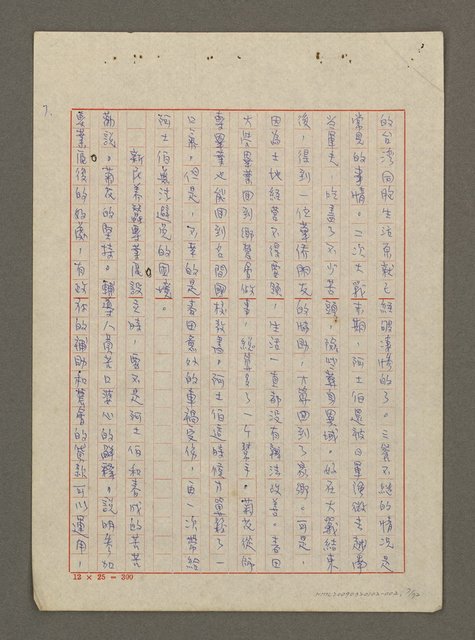 7.
的台灣同胞生活原就已經夠淒慘的了。三餐不繼的情況是
常見的事情。二次大戰末期,阿土伯是被日軍徵徵去越南
當軍夫,吃盡了不少苦頭,險些葬身異域。好在大戰結束
後,得到一位華僑朋友的幫助,才算回到了家鄉。可是,
因為土地經營不得要領,生活一直都沒有辦法改善。春田
大學畢業回到鄉農會做事,總算多了一个幫手。菊花從師
專畢業也能回到名間國校教書。阿土伯這時候才單輕了一
口氣。但是,不幸的是春田意外的車禍受傷,再一次帶給
阿土伯無法避免的困境。
新民養蠶專業區設立時,要不是阿土伯和春成的苦苦
勸說。菊花的堅持。輔導人員苦口婆心的解釋。說明參加
專業區後的好處,有政府的補助和農會的貸款可以運用,
12 × 25 = 300
NMTL20090320102-002